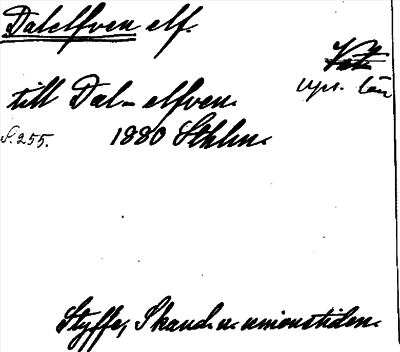 Dalelfven elf.
Ups. län
till Dal-elfven.
S. 255. 1880 Sthlm.
Styffe, Skand. u. unionstiden.